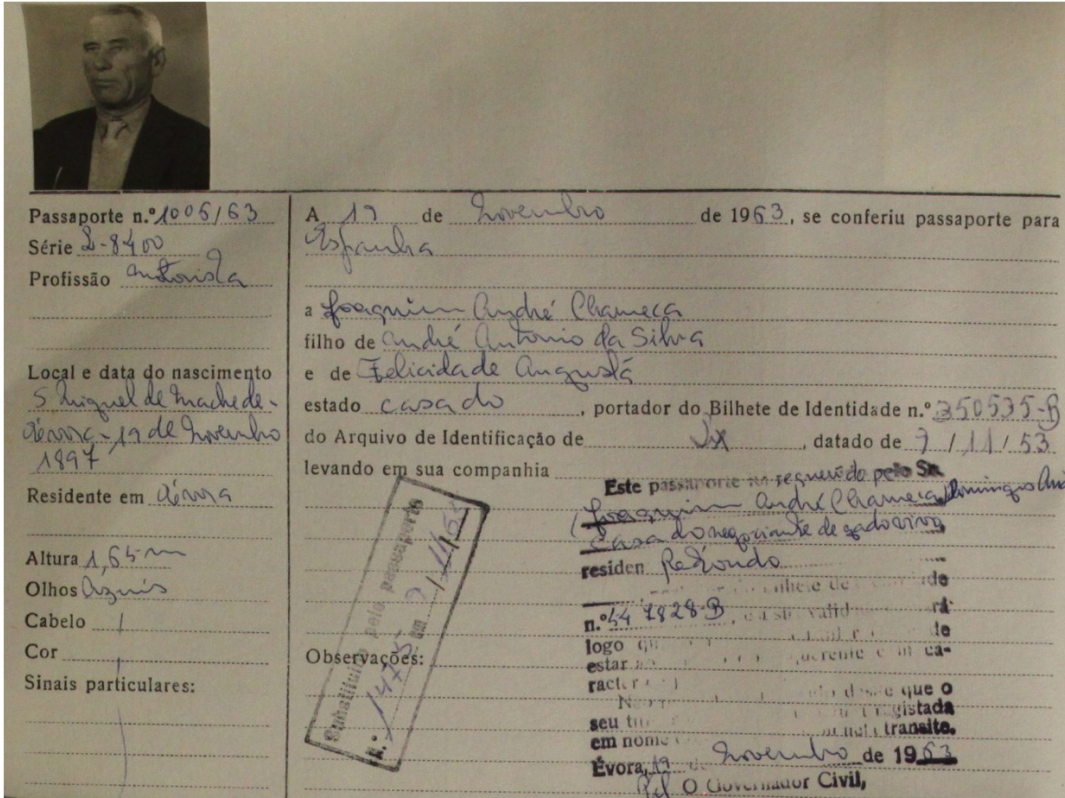 Passaporte n.º 1006/63
Série
Profissão motorista
Local e data do nascimento
S. Miguel de Machede -
Évora - 19 de Novembro
1897
Residente em Évora
Altura 1,65 m
Olhos Azuis
Cabelo
Cor
Sinais particulares:
A 19 de Novembro de 1963, se conferiu passaporte para
Espanha
a Joaquim André Chameca
filho de André Antonio da Silva
e de Felicidade Augusta
estado casado, portador do Bilhete de Identidade n.º 350535-B
do Arquivo de Identificação de Lx, datado de 7/11/53
levando em sua companhia
Observações:
Substituido pelo passaporte
n.º em
Este passaporte foi requerido pelo Sr.
Joaquim André Chameca, Domingos
casado negociante de gado vivo
residen Redondo
n.º 447828-B,
logo
estar ca-
racter
que o
seu registada
em nome transito.
Évora, 19 de Novembro de 1963
Pel O Governador Civil,